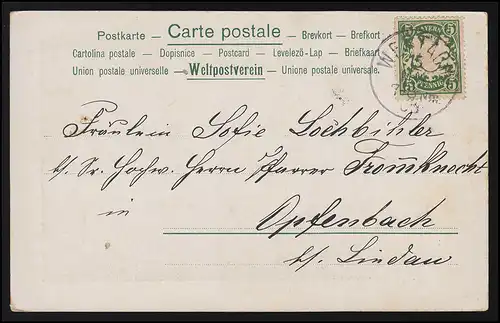 Postkarte – Carte postale – Brevkort – Brefkort
Cartolina postale – Dopisnice – Postcard – Levelező-Lap – Briefkaart
Union postale universelle – Weltpostverein – Unione postale universale.
BAYERN
5 5
PFENNIG
5 5
Fräulein Sofie Lochbihler
b/. Sr. Hochw. Herrn Pfarrer Fromknecht
in
Opfenbach
b/. Lindau